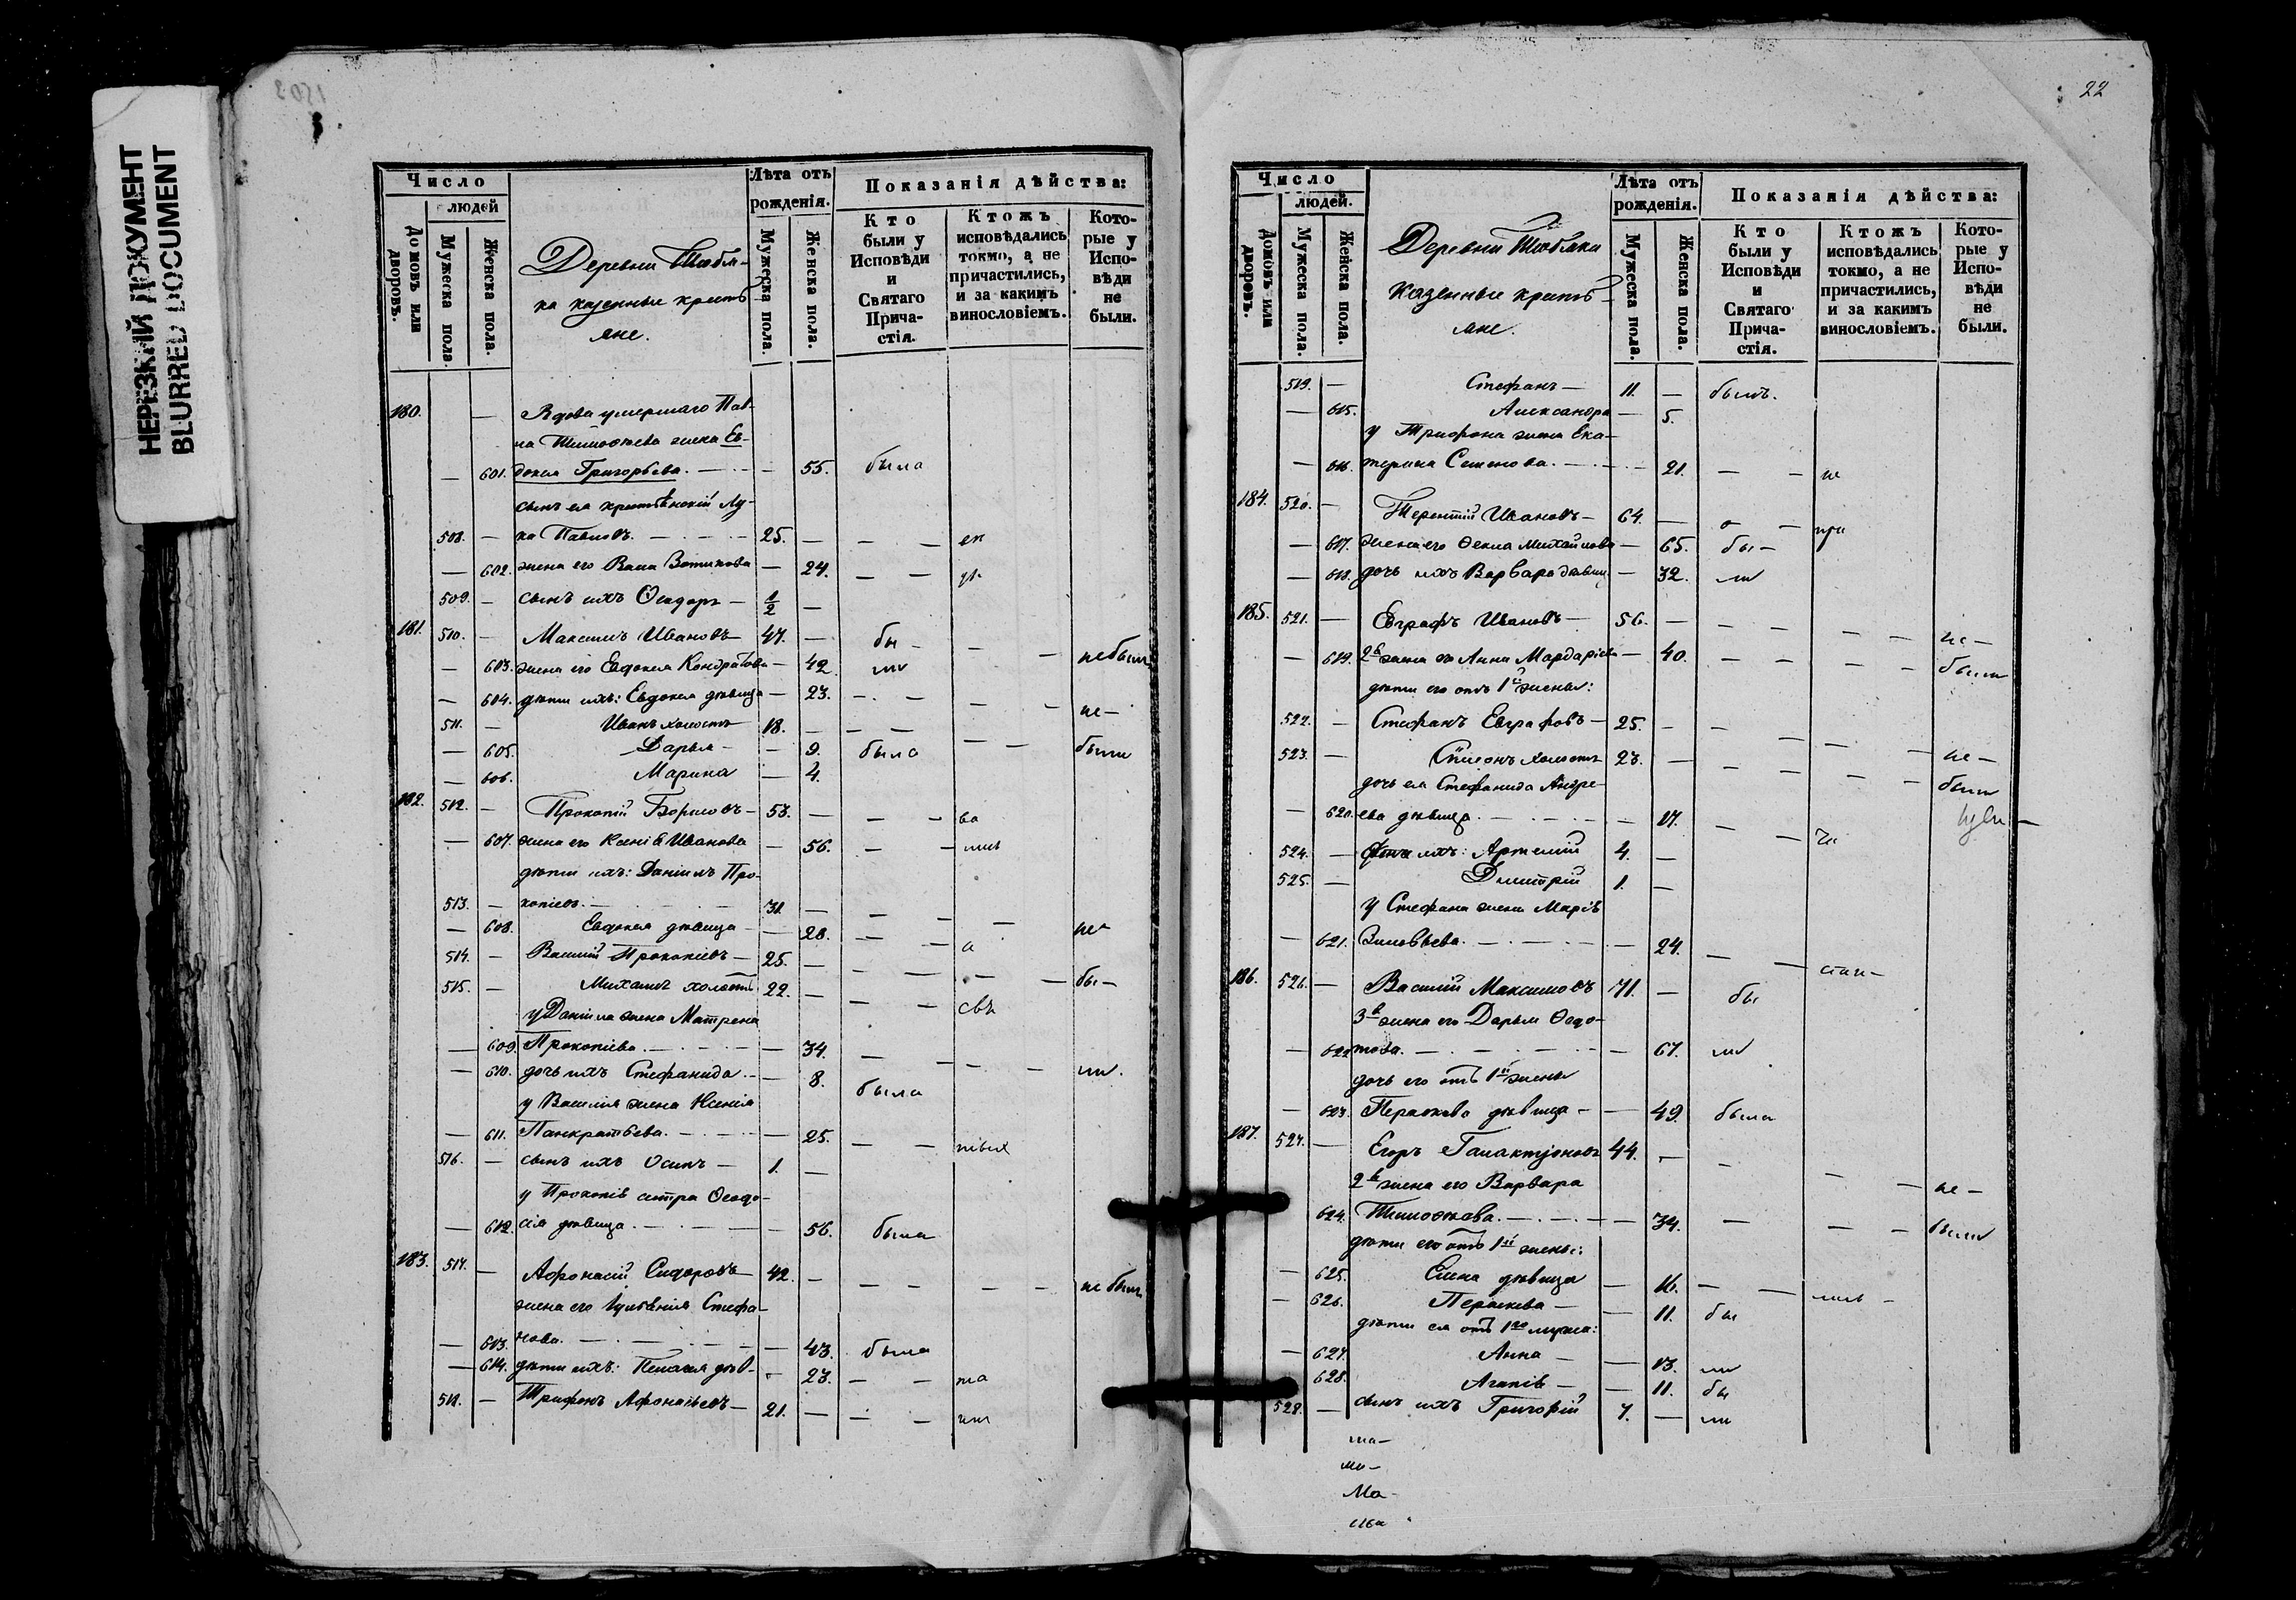 НЕРЕЗКИЙ ДОКУМЕНТ
BLURRED DOCUMENT
Число
людей
Домовъ или дворовъ.
Мужеска пола
Женска пола.
Деревни
ка казенные кресть-
яне.
Лѣта отъ рожденія.
Мужеска пола.
Женска пола.
Показанія дѣйства:
Кто были у Исповѣди и Святаго Прича-стія.
Ктожъ исповѣдались токмо, а не причастились, и за какимъ винословіемъ.
Кото-рые у Испо-вѣди не были.
180. — Вдова умершаго Пав-
ла Тимоѳеева жена Ев-
— 601. докія Григорьева. — 55. была
сынъ ея крестьянскій Лу-
508. — ка Павловъ. — 25. —
— 602. жена его — 24.
509. — сынъ ихъ Ѳеодоръ — 1/2 —
181. 510. — Максимъ Ивановъ — 47. — бы — не были
— 603. жена его Евдокія Кондратова — 42 ли
— 604. дѣти ихъ: Евдокія дѣвица — 23. — не —
511. — Иванъ холостъ 18. — были
— 605. Дарья — 9. была
— 606. Марина — 4.
182. 512. — Прокопій Борисовъ — 53. —
— 607. жена его Ксенія Иванова — 56. —
дѣти ихъ: Даніилъ Про-
513. — копіевъ. — 31. — не
— 608. Евдокія дѣвица — 28.
514. — Василій Прокопіевъ — 25. — бы —
515. — Михаилъ холостъ 22. —
у Даніила жена Матрена
— 609. Прокопіева. — 34. — ли.
— 610. дочь ихъ Стефанида — 8. была
у Василія жена Ксенія
— 611. Панкратьева. — 25. —
516. — сынъ ихъ Осипъ — 1. —
у Прокопія сестра Ѳеодо-
— 612. сія дѣвица. — 56. была
183. 517. — Афонасій Сидоровъ — 42. — не были
жена его Стефа-
— 613. нова. — 43. была
— 614. дѣти ихъ: Пелагея дѣв. — 23. —
518. — Трифонъ Афонасьевъ — 21. —
22
Число
людей.
Домовъ или дворовъ.
Мужеска пола.
Женска пола.
Деревни
казенные кресть-
яне.
Лѣта отъ рожденія.
Мужеска пола.
Женска пола.
Показанія дѣйства:
Кто были у Исповѣди и Святаго Прича-стія.
Ктожъ исповѣдались токмо, а не причастились, и за какимъ винословіемъ.
Кото-рые у Испо-вѣди не были.
519. — Стефанъ — 11. — былъ.
— 615. Александра — 5.
у Трифона жена Ека-
— 616. терина Семенова. — 21. — не
184. 520. — Терентій Ивановъ — 64. — при
— 617. жена его Ѳекла Михайлова — 65. бы —
— 618. дочь ихъ Варвара дѣвиц. — 32. ли
185. 521. — Евграфъ Ивановъ — 56. — не —
— 619. 2я жена его Анна Мардаріева — 40. — были
дѣти его отъ 1й жены:
522. — Стефанъ Евграфовъ — 25. — не —
523. — Сѵмеонъ холостъ 23. — были
дочь ея Стефанида Андре-
— 620. ева дѣвица. — 17. —
524. — ихъ: Артемій 4. —
525. — Дмитрій 1. —
у Стефана жена Марія
— 621. Зиновьева. — 24. —
186. 526. — Василій Максимовъ 71. — бы
3я жена его Дарья Ѳедо-
— 622. това. — 67. ли
дочь его отъ 1й жены
— 623. Параскева дѣвица — 49. была
187. 527. — Егоръ Галактіоновъ 44. — не —
2я жена его Варвара
624. Тимоѳеева. — 34. — были
дѣти его отъ 1й жены:
— 625. Елена дѣвица — 16. —
— 626. Параскева — 11. бы
дѣти ея отъ 1го мужа:
— 627. Анна — 13. ли
628. Агапія — 11. бы
528. — сынъ ихъ Григорій 7. — ли